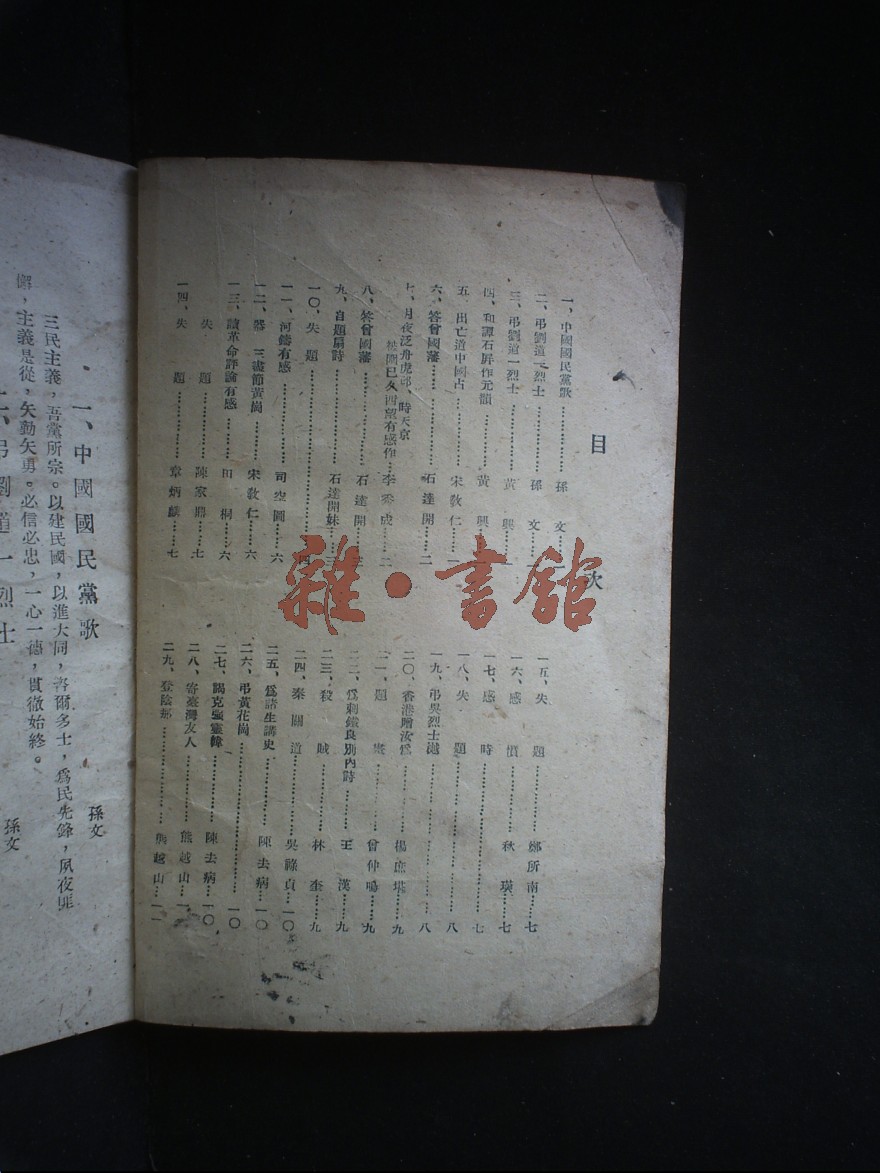 目次
一、中國國民黨歌……孫文……
二、弔劉道一烈士……孫文……
三、弔劉道一烈士……黃興……
四、和譚石屏作元韻……黃興……
五、出亡道中國占……宋敎仁……
六、答曾國藩……石達開……二
七、月夜泛舟虎邱、時天京
被圍已久四望有感作…李秀成…二
八、答曾國藩……石達開……
九、自題扇詩……石達開妹……
一〇、失題……四
一一、河鑄有感……司空圖……六
一二、三盡節黃崗……宋敎仁……六
一三、讀革命評論有感……田桐……六
失題……陳家鼎……七
一四、失題……章炳麟……七
一五、失題……鄭所南……七
一六、感憤……秋瑛……七
一七、感時……七
一八、失題……八
一九、弔吳烈士樾……八
二〇、香港贈汝爲……楊庶堪……九
二一、題……曾仲鳴……九
二二、爲刺鐵良別內詩……王漢……九
二三、殺賊……林奎……九
二四、秦關道……吳祿貞…一〇
二五、爲諸生講史……陳去病…一〇
二六、弔黃花崗……一〇
二七、謁克强靈幃……陳去病…一〇
二八、寄臺灣友人……熊越山…一一
二九、登陰……熊越山…一一
雜·書舘
一、中國國民黨歌
孫文
三民主義，吾黨所宗。以建民國，以進大同，咨爾多士，爲民先鋒，夙夜匪
懈，主義是從，矢勤矢勇。必信必忠，一心一德，貫徹始終。
二、弔劉道一烈士
孫文